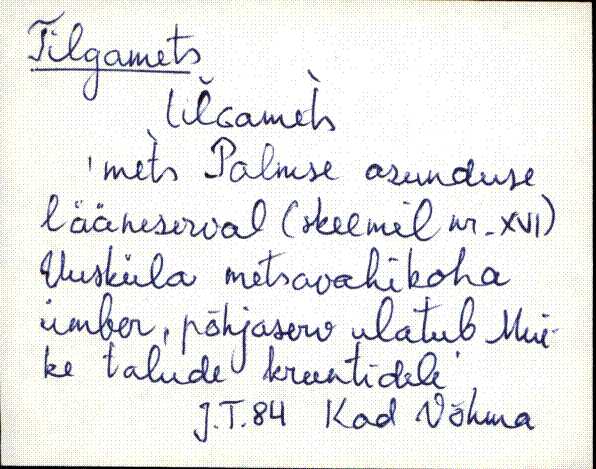 Tilgamets
tĭlɢamèts
'mèts Palmse asunduse
lääneserval (skeemil nr. XVI)
Uusküla metsavahikoha
ümber, põhjaserv ulatub Mui-
ke talude kruntidele'
J.T. 84 Kad Võhma